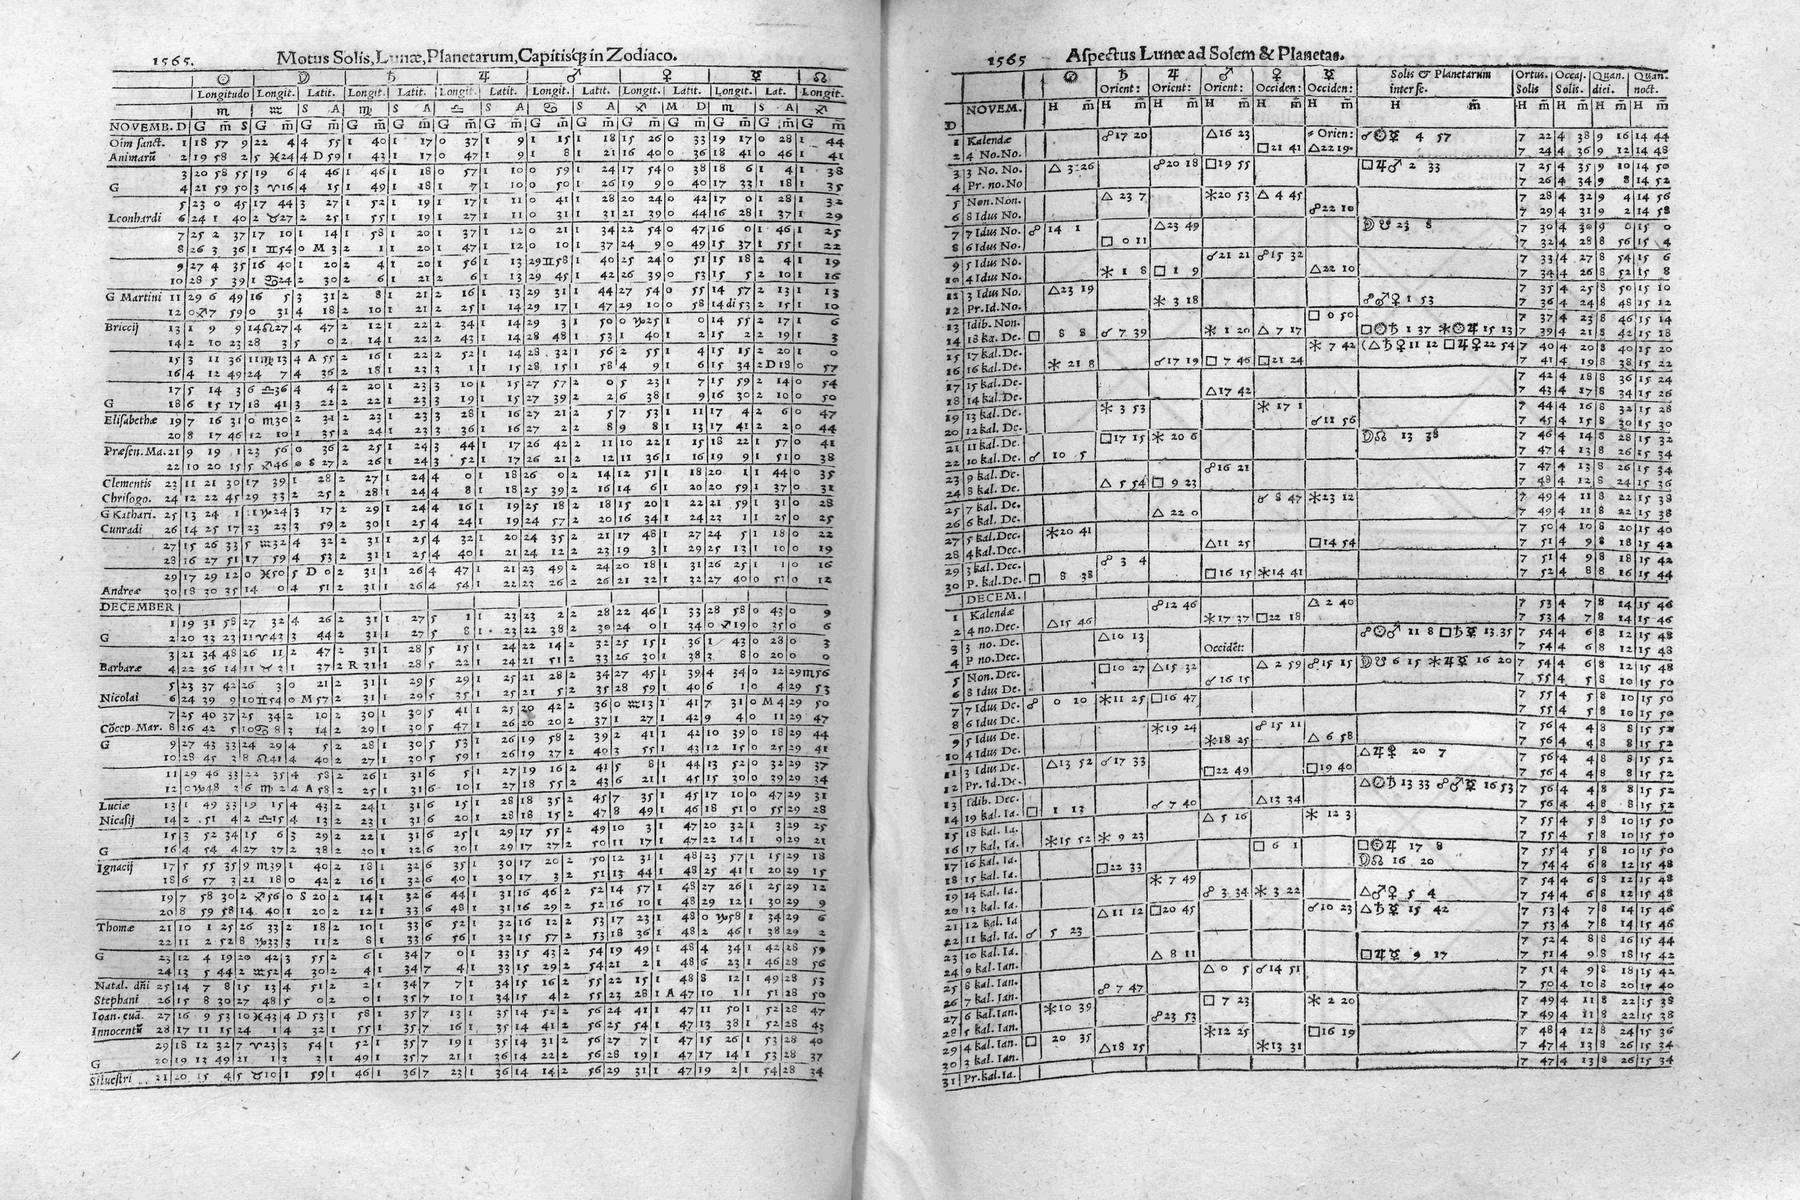 1565. Motus Solis, Lunæ, Planetarum, Capitisq́; in Zodiaco.
☉ ☽ ♄ ♃ ♂ ♀ ☿ ☊
Longitudo Longit. Latit. Longit. Latit. Longit. Latit. Longit. Latit. Longit. Latit. Longit. Lat. Longit.
NOVEMB. D G m̃ S G m̃ G m̃ G m̃ G m̃ G m̃ G m̃ G m̃ G m̃ G m̃ G m̃ G m̃ G m̃ G m̃
Oīm sanct. 1 18 57 9 22 4 4 55 1 40 1 17 0 37 1 9 1 15 1 18 15 26 0 33 19 17 0 28 1 44
Animarū 2 19 58 2 5 ♓24 4 D 59 1 43 1 17 0 47 1 9 1 8 1 21 16 40 0 36 18 41 0 46 1 41
3 20 58 55 19 6 4 46 1 46 1 18 0 57 1 10 0 59 1 24 17 54 0 38 18 6 1 4 1 38
G 4 21 59 50 3 ♈16 4 15 1 49 1 18 1 7 1 10 0 50 1 26 19 9 0 40 17 33 1 18 1 35
5 23 0 45 17 44 3 27 1 52 1 19 1 17 1 11 0 41 1 28 20 24 0 42 17 0 1 28 1 32
Leonhardi 6 24 1 40 2 ♉27 2 25 1 55 1 19 1 27 1 11 0 31 1 31 21 39 0 44 16 28 1 37 1 29
7 25 2 37 17 10 1 14 1 58 1 20 1 37 1 12 0 21 1 34 22 54 0 47 16 0 1 46 1 25
8 26 3 36 1 ♊54 0 M 3 2 1 1 20 1 47 1 12 0 10 1 37 24 9 0 49 15 37 1 55 1 22
9 27 4 35 16 40 1 20 2 4 1 20 1 56 1 13 29♊58 1 40 25 24 0 51 15 18 2 4 1 19
10 28 5 39 1 ♋24 2 30 2 6 1 21 2 6 1 13 29 45 1 42 26 39 0 53 15 5 2 10 1 16
G Martini 11 29 6 49 16 5 3 31 2 8 1 21 2 16 1 13 29 31 1 44 27 54 0 55 14 57 2 13 1 13
12 0♐7 59 0 31 4 18 2 10 1 21 2 25 1 14 29 17 1 47 29 10 0 58 14 di 53 2 15 1 10
Briccij 13 1 9 9 14♌27 4 47 2 12 1 22 2 34 1 14 29 3 1 50 0 ♑25 1 0 14 55 2 17 1 6
14 2 10 23 28 3 5 0 2 14 1 22 2 43 1 14 28 48 1 53 1 40 1 2 15 2 2 19 1 3
15 3 11 36 11♍13 4 A 55 2 16 1 22 2 52 1 14 28 32 1 56 2 55 1 4 15 15 2 20 1 0
16 4 12 49 24 7 4 36 2 18 1 23 3 1 1 15 28 15 1 58 4 9 1 6 15 34 2 D 18 0 57
17 5 14 3 6 ♎36 4 4 2 20 1 23 3 10 1 15 27 57 2 0 5 23 1 7 15 59 2 14 0 54
G 18 6 15 17 18 41 3 22 2 22 1 23 3 19 1 15 27 39 2 2 6 38 1 9 16 30 2 10 0 50
Elisabethæ 19 7 16 31 0 ♏30 2 31 2 23 1 23 3 28 1 16 27 21 2 5 7 53 1 11 17 4 2 6 0 47
20 8 17 46 12 10 1 35 2 24 1 23 3 36 1 16 27 2 2 8 9 8 1 13 17 41 2 2 0 44
Præsen. Ma. 21 9 19 1 23 56 0 36 2 25 1 24 3 44 1 17 26 42 2 11 10 22 1 15 18 22 1 57 0 41
22 10 20 15 5 ♐46 0 S 27 2 26 1 24 3 52 1 17 26 21 2 12 11 36 1 16 19 9 1 51 0 38
Clementis 23 11 21 30 17 39 1 28 2 27 1 24 4 0 1 18 26 0 2 14 12 51 1 18 20 1 1 44 0 35
Chrisogo. 24 12 22 45 29 33 2 25 2 28 1 24 4 8 1 18 25 39 2 16 14 6 1 20 20 59 1 37 0 31
G Kathari. 25 13 24 1 11♑24 3 17 2 29 1 24 4 16 1 19 25 18 2 18 15 20 1 22 21 59 1 31 0 28
Cunradi 26 14 25 17 23 23 3 59 2 30 1 25 4 24 1 19 24 57 2 20 16 34 1 24 23 1 1 25 0 25
27 15 26 33 5 ♒32 4 32 2 31 1 25 4 32 1 20 24 35 2 21 17 48 1 27 24 5 1 18 0 22
28 16 27 51 17 59 4 53 2 31 1 25 4 40 1 21 24 12 2 23 19 3 1 29 25 13 1 10 0 19
29 17 29 12 0 ♓50 5 D 0 2 31 1 26 4 47 1 21 23 49 2 24 20 18 1 31 26 25 1 1 0 16
Andreæ 30 18 30 35 14 0 4 51 2 31 1 26 4 54 1 22 23 26 2 26 21 32 1 32 27 40 0 51 0 12
DECEMBER
1 19 31 58 27 32 4 26 2 31 1 27 5 1 1 23 23 2 2 28 22 46 1 33 28 58 0 43 0 9
G 2 20 33 23 11♈43 3 44 2 31 1 27 5 8 1 23 22 38 2 30 24 0 1 34 0 ♐19 0 35 0 6
3 21 34 48 26 11 2 47 2 31 1 28 5 15 1 24 22 14 2 32 25 15 1 36 1 43 0 28 0 3
Barbaræ 4 22 36 14 11 ♉ 2 1 37 2 R 31 1 28 5 22 1 24 21 51 2 33 26 30 1 38 3 8 0 20 0 0
5 23 37 42 26 3 0 21 2 31 1 29 5 29 1 25 21 28 2 34 27 45 1 39 4 34 0 12 29♏56
Nicolai 6 24 39 9 10♊54 0 M 57 2 31 1 29 5 35 1 25 21 5 2 35 28 59 1 40 6 1 0 4 29 53
7 25 40 37 25 34 2 10 2 30 1 30 5 41 1 25 20 42 2 36 0 ♒13 1 41 7 31 0 M 4 29 50
Cōcep. Mar. 8 26 42 5 10♋ 8 3 14 2 29 1 30 5 47 1 26 20 20 2 37 1 27 1 42 9 4 0 11 29 47
G 9 27 43 33 24 29 4 5 2 28 1 30 5 53 1 26 19 58 2 39 2 41 1 42 10 39 0 18 29 44
10 28 45 3 8 ♌41 4 40 2 27 1 30 5 59 1 26 19 37 2 40 3 55 1 43 12 15 0 25 29 41
11 29 46 33 22 35 4 58 2 26 1 31 6 5 1 27 19 16 2 41 5 8 1 44 13 52 0 32 29 37
12 0♑48 2 6 ♍ 2 4 A 58 2 25 1 31 6 10 1 27 18 55 2 43 6 21 1 45 15 30 0 39 29 34
Luciæ 13 1 49 33 19 15 4 43 2 24 1 31 6 15 1 28 18 35 2 45 7 35 1 45 17 10 0 47 29 31
Nicasij 14 2 51 4 2 ♎15 4 13 2 23 1 31 6 20 1 28 18 15 2 47 8 49 1 46 18 51 0 55 29 28
15 3 52 34 15 6 3 29 2 22 1 31 6 25 1 29 17 55 2 49 10 3 1 47 20 32 1 3 29 25
G 16 4 54 4 27 37 2 38 2 20 1 32 6 30 1 29 17 37 2 50 11 17 1 47 22 14 1 9 29 21
Ignacij 17 5 55 35 9 ♏39 1 40 2 18 1 32 6 35 1 30 17 20 2 50 12 31 1 48 23 57 1 15 29 18
18 6 57 3 21 18 0 42 2 16 1 32 6 40 1 30 17 3 2 51 13 44 1 48 25 41 1 20 29 15
19 7 58 30 2 ♐56 0 S 20 2 14 1 32 6 44 1 31 16 46 2 52 14 57 1 48 27 26 1 25 29 12
20 8 59 58 14 40 1 20 2 12 1 33 6 48 1 31 16 29 2 52 16 10 1 48 29 12 1 30 29 9
Thomæ 21 10 1 25 26 33 2 18 2 10 1 33 6 52 1 32 16 12 2 53 17 23 1 48 0 ♑58 1 34 29 6
22 11 2 52 8 ♑33 3 11 2 8 1 33 6 56 1 32 15 57 2 53 18 36 1 48 2 46 1 38 29 2
G 23 12 4 19 20 42 3 55 2 6 1 34 7 0 1 33 15 43 2 54 19 49 1 48 4 34 1 42 28 59
24 13 5 44 2 ♒52 4 30 2 4 1 34 7 4 1 33 15 29 2 54 21 2 1 48 6 23 1 46 28 56
Natal. dn̄i 25 14 7 8 15 13 4 51 2 2 1 34 7 7 1 34 15 16 2 55 22 15 1 48 8 12 1 49 28 53
Stephani 26 15 8 30 27 48 5 0 2 0 1 35 7 10 1 34 15 4 2 55 23 28 1 A 47 10 1 1 51 28 50
Ioan. euā. 27 16 9 53 10 ♓43 4 D 53 1 58 1 35 7 13 1 35 14 52 2 56 24 41 1 47 11 50 1 52 28 47
Innocentū 28 17 11 15 24 1 4 32 1 55 1 35 7 16 1 35 14 41 2 56 25 54 1 47 13 38 1 52 28 43
29 18 12 32 7 ♈23 3 54 1 52 1 35 7 19 1 35 14 31 2 56 27 7 1 47 15 26 1 53 28 40
G 30 19 13 49 21 1 3 3 1 49 1 35 7 21 1 36 14 22 2 56 28 19 1 47 17 14 1 53 28 37
Siluestri 31 20 15 4 5 ♉10 1 59 1 46 1 36 7 23 1 36 14 14 2 56 29 31 1 47 19 2 1 54 28 34
1565 Aspectus Lunæ ad Solem & Planetas.
☉ ♄ ♃ ♂ ♀ ☿ Solis & Planetarum Ortus. Occas. Quan. Quan.
Orient: Orient: Orient: Occiden: Occiden: inter se. Solis Solis. diei. noct.
D NOVEM. H m̃ H m̃ H m̃ H m̃ H m̃ H m̃ H m̃ H m̃ H m̃ H m̃ H m̃
1 Kalendæ ☍17 20 △16 23 Orien: ☌☉☿ 4 57 7 22 4 38 9 16 14 44
2 4 No. No. □21 41 △22 19 7 24 4 36 9 12 14 48
3 3 No. No. △ 3 26 ☍20 18 □19 55 □♃♂ 2 33 7 25 4 35 9 10 14 50
4 Pr. no. No 7 26 4 34 9 8 14 52
5 Non. Non. △ 23 7 ⚹20 53 △ 4 45 7 28 4 32 9 4 14 56
6 8 Idus No. ☍22 10 7 29 4 31 9 2 14 58
7 7 Idus No. ☍ 14 1 △23 49 ☽☋ 23 8 7 30 4 30 9 0 15 0
8 6 Idus No. □ 0 11 7 32 4 28 8 56 15 4
9 5 Idus No. ☌21 21 ☍15 32 7 33 4 27 8 54 15 6
10 4 Idus No. ⚹ 1 8 □ 1 9 △22 10 7 34 4 26 8 52 15 8
11 3 Idus No. △23 19 7 35 4 25 8 50 15 10
12 Pr. Id. No ⚹ 3 18 ☍♂♀ 1 53 7 36 4 24 8 48 15 12
13 Idib. Non. □ 0 50 7 37 4 23 8 46 15 14
14 18 ka. De. □ 8 8 ☌ 7 39 ⚹ 1 20 △ 7 17 □☉♄ 1 37 ⚹☉♃ 15 13 7 39 4 21 8 42 15 18
15 17 kal. De. ⚹ 7 42 △♄♀ 11 12 □♃♀ 22 54 7 40 4 20 8 40 15 20
16 16 kal. De. ⚹ 21 8 ☌17 19 □ 7 46 □21 24 7 41 4 19 8 38 15 22
17 15 kal. De. 7 42 4 18 8 36 15 24
18 14 kal. De. △17 42 7 43 4 17 8 34 15 26
19 13 kal. De. ⚹ 3 53 ⚹ 17 1 7 44 4 16 8 32 15 28
20 12 kal. De. ☌11 56 7 45 4 15 8 30 15 30
21 11 kal. De. □17 15 ⚹ 20 6 ☽☊ 13 38 7 46 4 14 8 28 15 32
22 10 kal. De. ☌ 10 5 7 47 4 13 8 26 15 34
23 9 kal. De. ☍16 21 7 47 4 13 8 26 15 34
24 8 kal. De. △ 5 54 □ 9 23 7 48 4 12 8 24 15 36
25 7 kal. De. ☌ 8 47 ⚹23 12 7 49 4 11 8 22 15 38
26 6 kal. De. △ 22 0 7 49 4 11 8 22 15 38
27 5 kal. Dec. ⚹20 41 7 50 4 10 8 20 15 40
28 4 kal. Dec. △11 25 □14 54 7 51 4 9 8 18 15 42
29 3 kal. Dec. ☍ 3 4 7 51 4 9 8 18 15 42
30 P. kal. De. □ 8 38 □16 15 ⚹14 41 7 52 4 8 8 16 15 44
DECEM.
1 Kalendæ ☍12 46 △ 2 40 7 53 4 7 8 14 15 46
2 4 no. Dec. △15 46 ⚹17 37 □22 18 7 53 4 7 8 14 15 46
3 3 no. De. △10 13 ☍☉♂ 11 8 □♄☿ 13 35 7 54 4 6 8 12 15 48
4 P no. Dec. Occidēt: 7 54 4 6 8 12 15 48
5 Non. Dec. □10 27 △15 32 △ 2 59 ☍15 15 ☽☋ 6 15 ⚹♃☿ 16 20 7 54 4 6 8 12 15 48
6 8 Idus De. ☌16 15 7 55 4 5 8 10 15 50
7 7 Idus De. ☍ 0 10 ⚹11 25 □16 47 7 55 4 5 8 10 15 50
8 6 Idus De. 7 55 4 5 8 10 15 50
9 5 Idus De. ⚹19 24 ☍15 11 7 56 4 4 8 8 15 52
10 4 Idus De. ⚹18 25 △ 6 58 7 56 4 4 8 8 15 52
11 3 Idus De. △13 52 ☌17 33 △♃♀ 20 7 7 56 4 4 8 8 15 52
12 Pr. Id. De. □22 49 □19 40 7 56 4 4 8 8 15 52
13 Idib. Dec. △☉♄ 13 33 ☍♂☿ 16 53 7 56 4 4 8 8 15 52
14 19 kal. Ia. □ 1 13 ☌ 7 40 △13 34 7 56 4 4 8 8 15 52
15 18 kal. Ia. △ 5 16 ⚹ 12 3 7 55 4 5 8 10 15 50
16 17 kal. Ia. ⚹15 52 ⚹ 9 23 7 55 4 5 8 10 15 50
17 16 kal. Ia. □ 6 1 □☉♃ 17 8 7 55 4 5 8 10 15 50
18 15 kal. Ia. □22 33 ☽☊ 16 20 7 54 4 6 8 12 15 48
19 14 kal. Ia. ⚹ 7 49 7 54 4 6 8 12 15 48
20 13 kal. Ia. ☍ 3 34 ⚹ 3 22 △♂♀ 5 4 7 54 4 6 8 12 15 48
21 12 kal. Ia △11 12 □20 45 ☌10 23 △♄☿ 15 42 7 53 4 7 8 14 15 46
22 11 kal. Ia. ☌ 5 23 7 53 4 7 8 14 15 46
23 10 kal. Ia. 7 52 4 8 8 16 15 44
24 9 kal. Ian. △ 8 11 □♃☿ 9 17 7 51 4 9 8 18 15 42
25 8 kal. Ian. △ 0 5 ☌14 51 7 51 4 9 8 18 15 42
26 7 kal. Ian. ☍ 7 47 7 50 4 10 8 20 15 40
27 6 kal. Ian. ⚹10 39 □ 7 23 ⚹ 2 20 7 49 4 11 8 22 15 38
28 5 kal. Ian. ☍23 53 7 49 4 11 8 22 15 38
29 4 kal. Ian. □ 20 35 ⚹12 25 □16 19 7 48 4 12 8 24 15 36
30 3 kal. Ian. △18 15 ⚹13 31 7 47 4 13 8 26 15 34
31 Pr. kal. Ia. 7 47 4 13 8 26 15 34